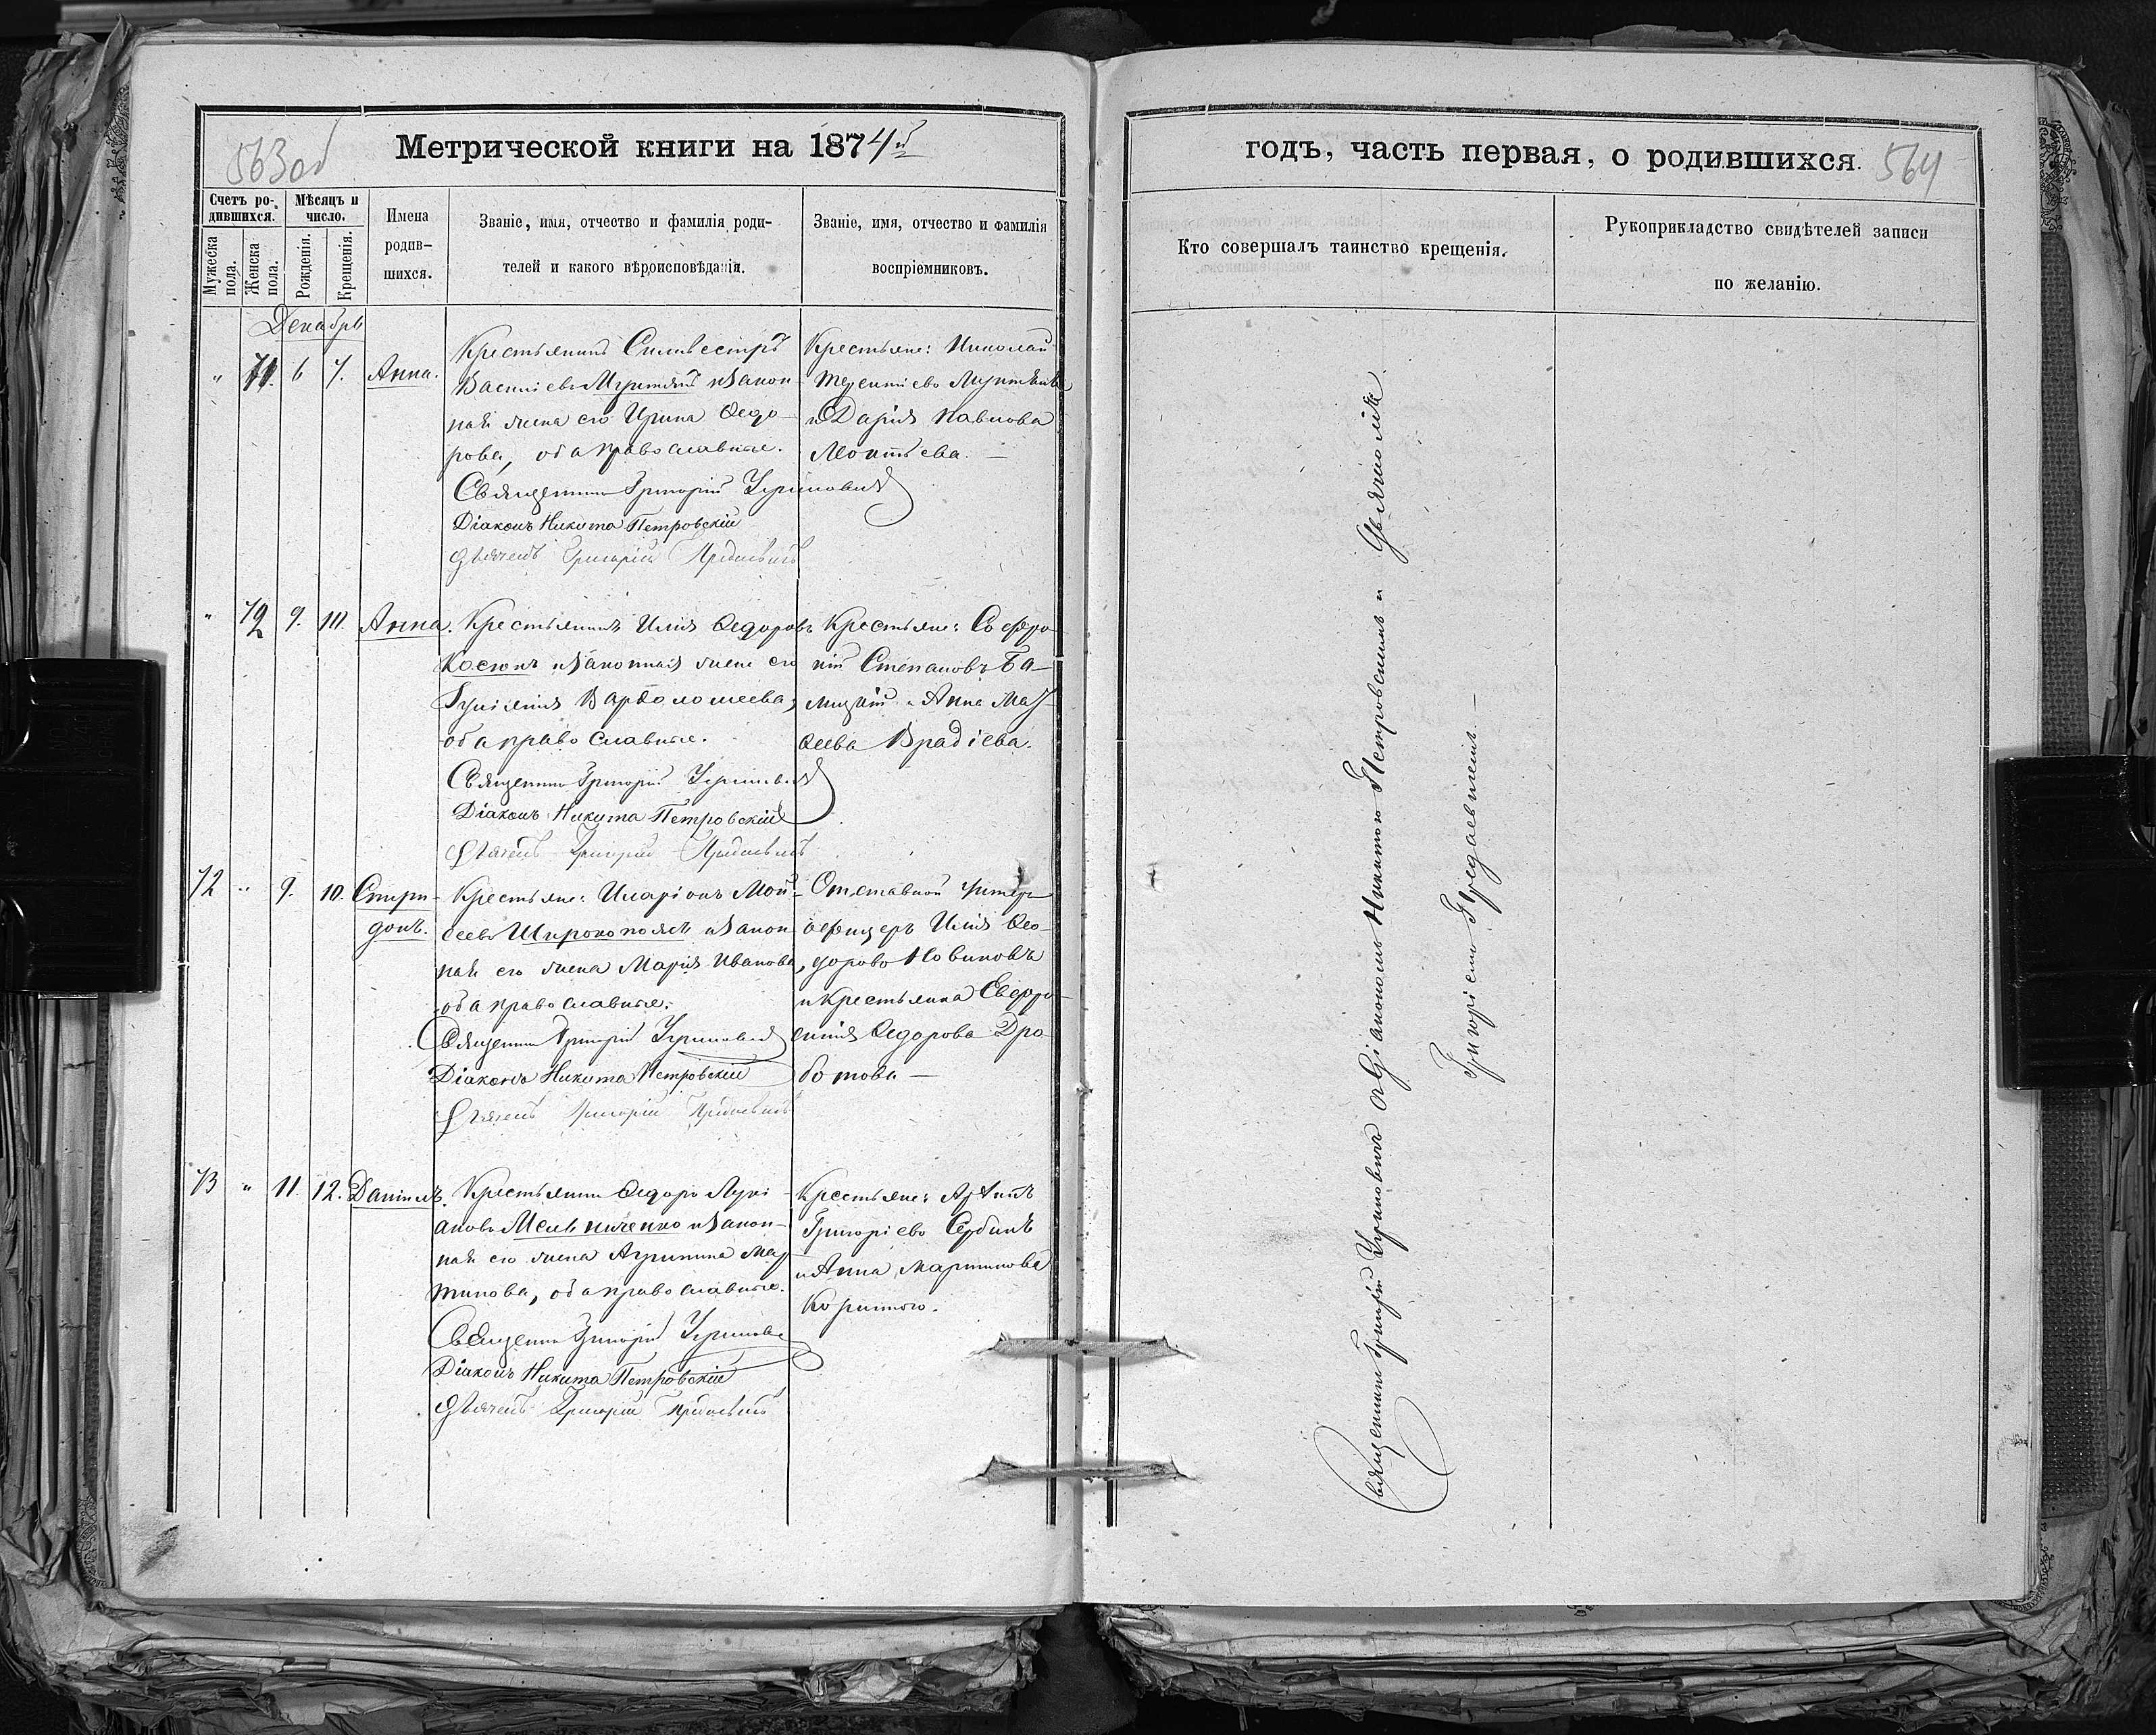 563об
Метрической книги на 1874й
Счетъ ро-
дившихся.
Мѣсяцъ и
число.
Мужеска
пола.
Женска
пола.
Рожденія.
Крещенія.
Имена
родив-
шихся.
Званіе, имя, отчество и фамилія роди-
телей и какого вѣроисповѣданія.
Званіе, имя, отчество и фамилія
воспріемниковъ.
Декабрь
" 71. 6 7. Анна.
Крестьянинъ Сильвестръ
Василіевъ и закон-
ная жена его Ирина Ѳедо-
рова, оба православные.
Священникъ Григорій
Діаконъ Никита Петровскій
Дьячекъ Григорій
Крестьяне: Николай
Терентіевъ
и Дарія Павлова
Леонтьева. —
" 72 9. 10. Анна.
Крестьянинъ Илія Ѳедоровъ
и законная жена его
Варфоломеева,
оба православные.
Священникъ Григорій
Діаконъ Никита Петровскій
Дьячекъ Григорій
Крестьяне: Софро-
ній Степановъ Ба-
и Анна Мат-
ѳеева Врадіева.
72 " 9. 10. Спири-
донъ.
Крестьяне: Иларіонъ Мои-
сеевъ Широкополъ и закон-
ная его жена Марія Иванова,
оба православные.
Священникъ Григорій
Діаконъ Никита Петровскій
Дьячекъ Григорій
Отставной унтеръ
офицеръ Илія Ѳео-
доровъ Новиковъ
и крестьянка Евфро-
синія Ѳедорова Дро-
ботова —
73 " 11. 12. Даніилъ.
Крестьянинъ Ѳедоръ Лукі-
ановъ Мельниченко и закон-
ная его жена Агрипина Мар-
тинова, оба православные.
Священникъ Григорій
Діаконъ Никита Петровскій
Дьячекъ Григорій
Крестьяне:
Григоріевъ Сербинъ
и Анна Мартинова
годъ, часть первая, о родившихся.
564
Кто совершалъ таинство крещенія.
Рукоприкладство свидѣтелей записи
по желанію.
Священникъ Григорій съ Діакономъ Никитою Петровскимъ и
Григоріемъ